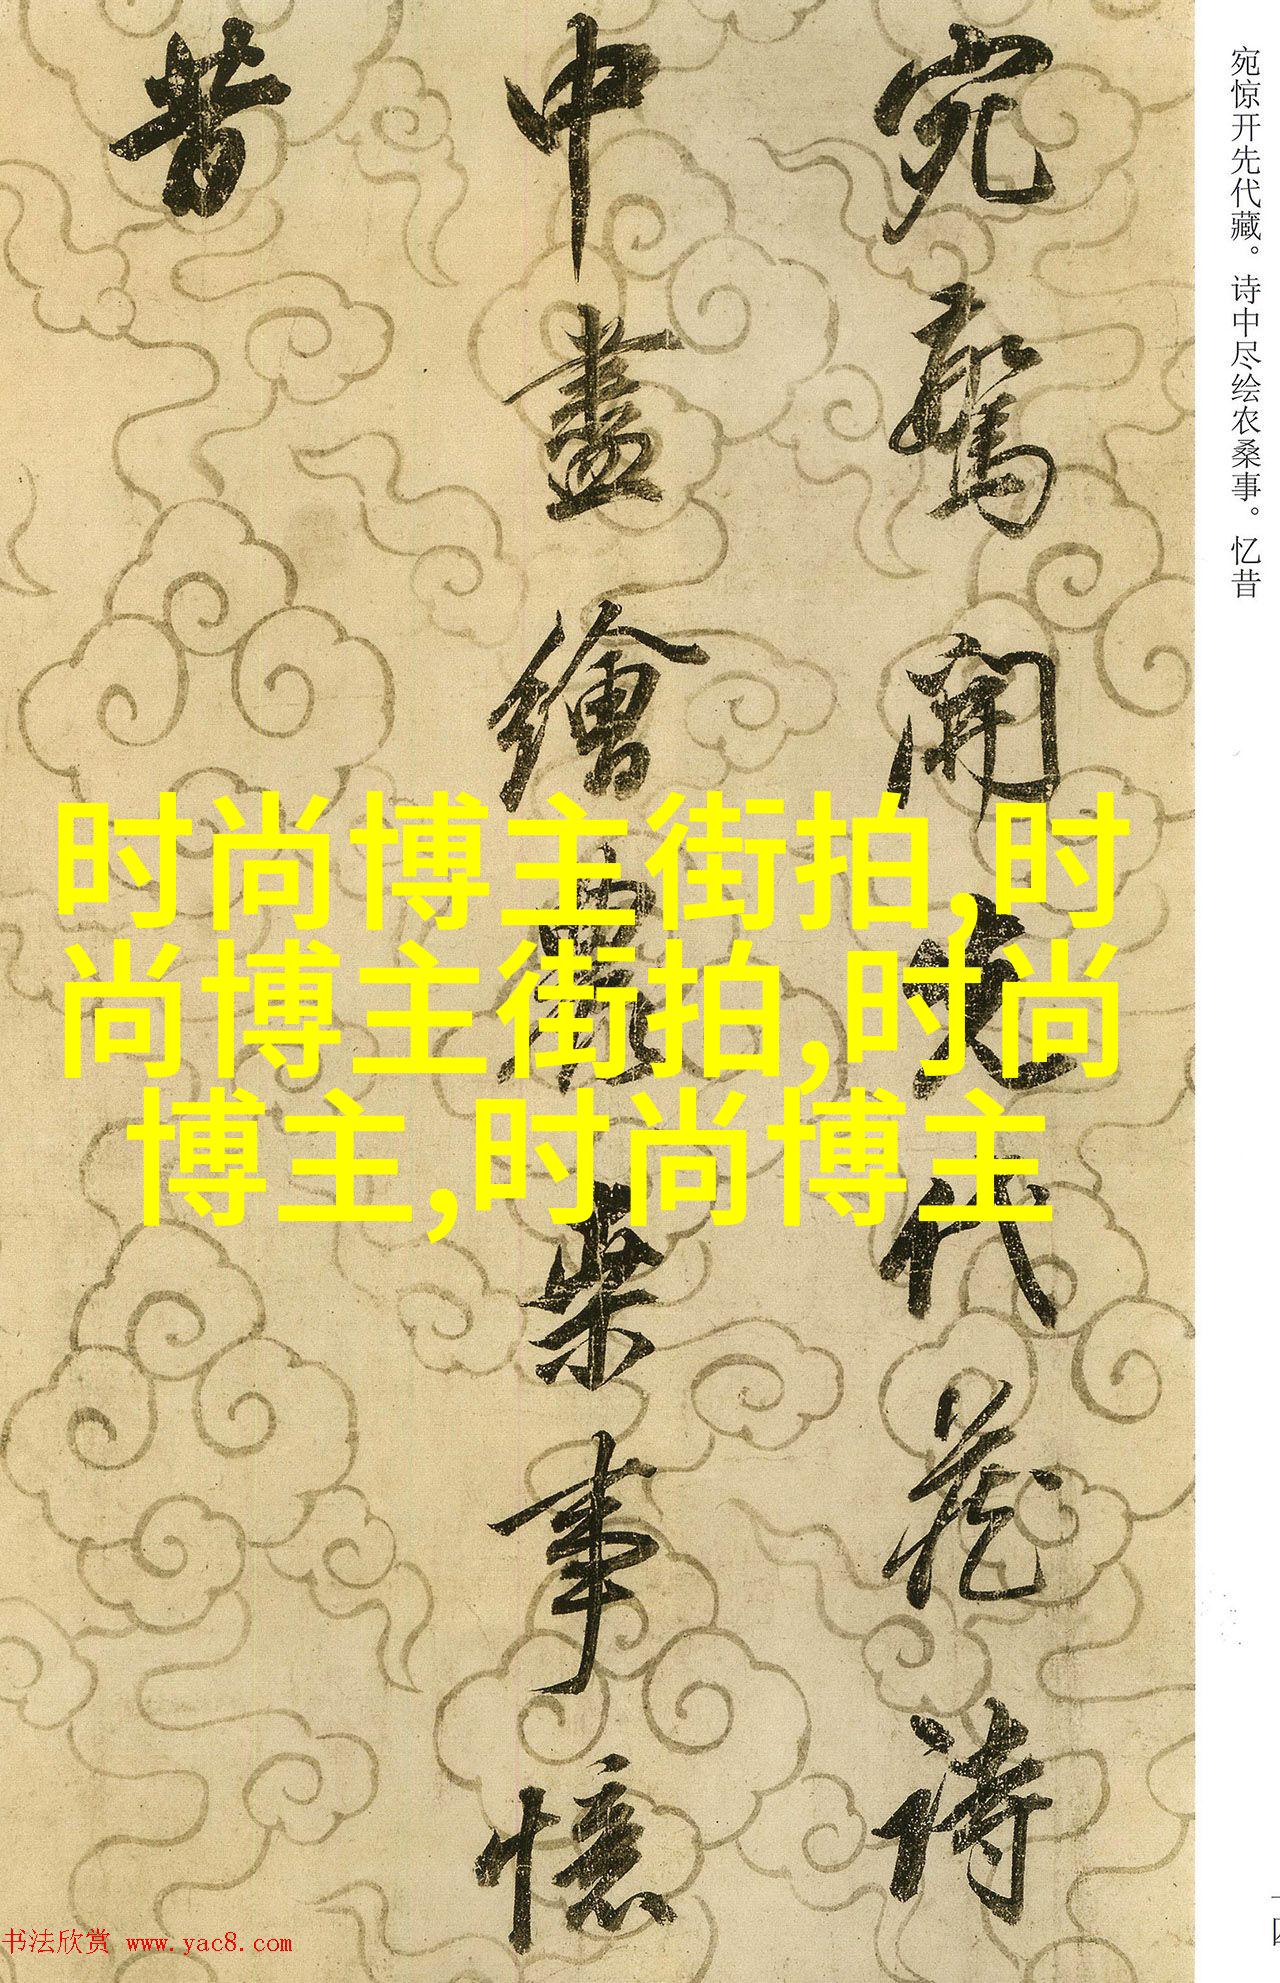 宛惊开先代藏。诗中尽绘农桑事。忆昔
宛驚開先代藏诗
中盡繪農桒事憶
昔
时尚博主街拍,时
尚博主街拍,时尚
博主,时尚博主
书法欣赏 www.yac8.com